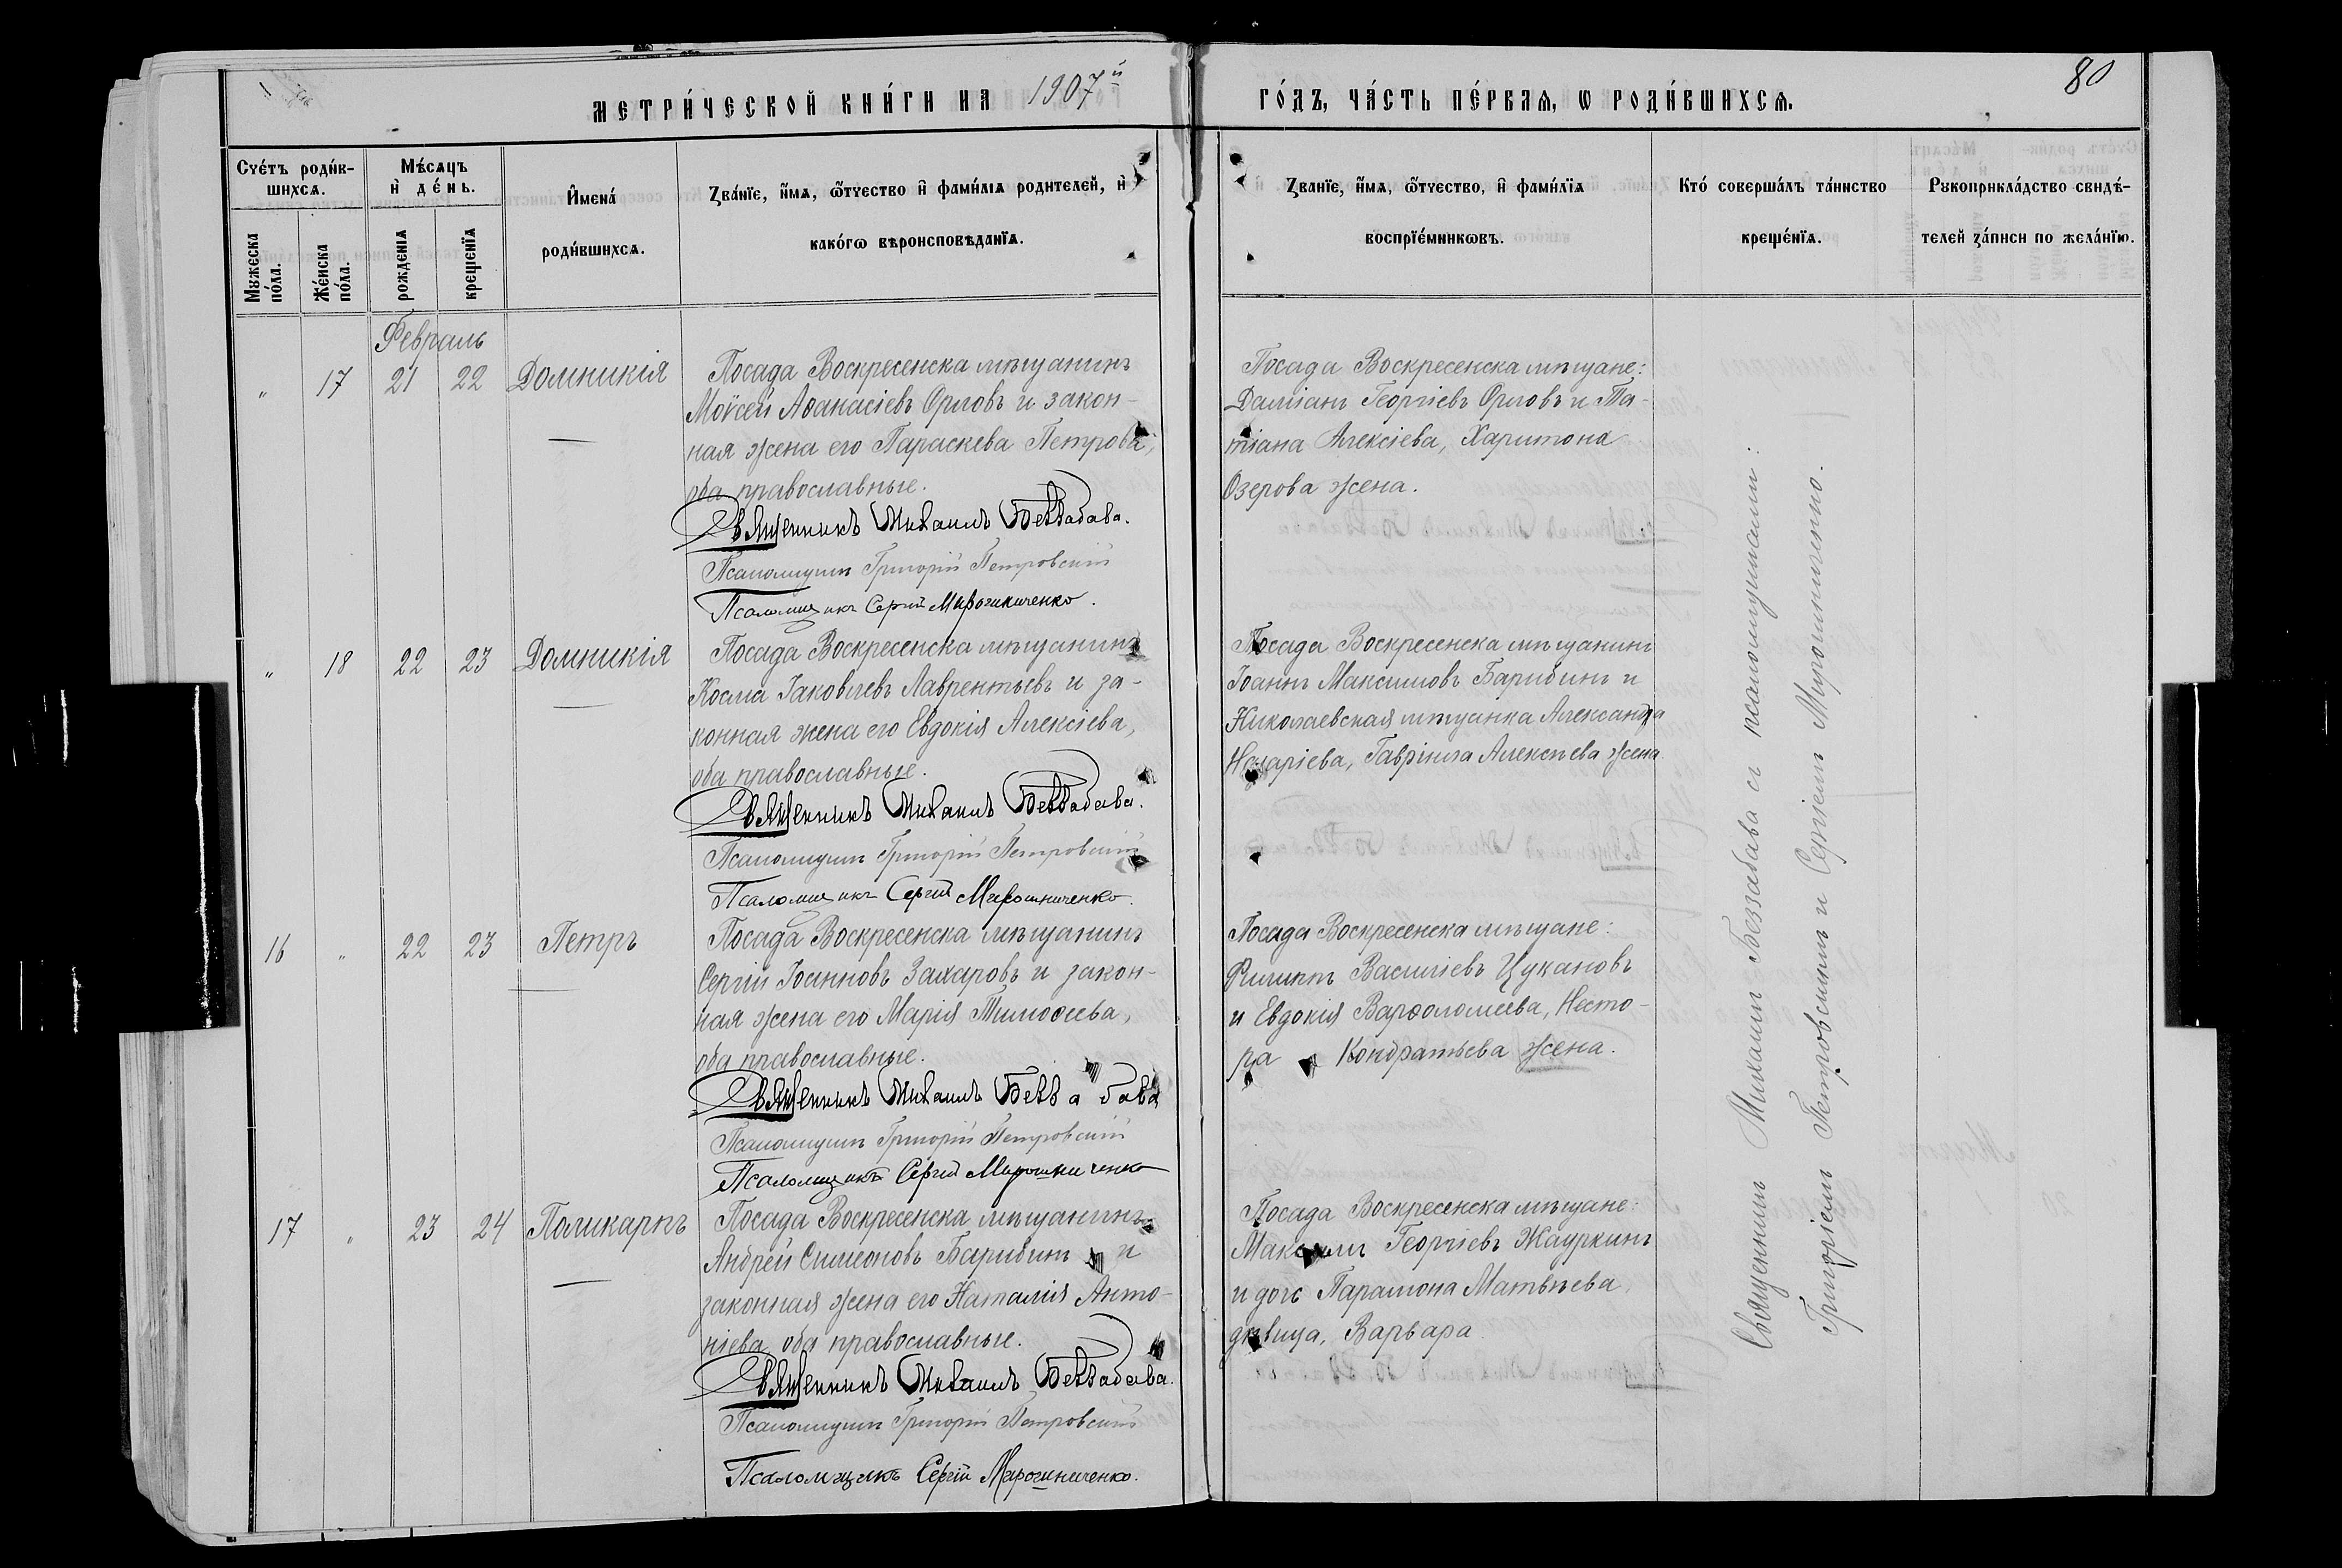 МЕТРИ́ЧЕСКОЙ КНИ́ГИ НА 1907й ГО́ДЪ, ЧА́СТЬ ПЕ́РВАѦ, Ѡ РОДИ́ВШИХСѦ.
80
Счетъ роди́вшихсѧ.
Мужеска по́ла.
Же́нска по́ла.
Мѣ́сѧцъ и де́нь.
рожденїѧ
крещенїѧ
И҆мена́ роди́вшихсѧ.
Зва́нїе, и҆́мѧ, ѻ҆́тчество и҆ фами́лїѧ родителей, и҆
како́гѡ вѣроисповѣданїѧ.
Зва́нїе, и҆́мѧ, ѻ҆́тчество, и҆ фами́лїѧ
воспрїе́мникѡвъ.
Кто́ соверша́лъ та́инство
креще́нїѧ.
Рукоприкла́дство свидѣ́-
телей за́писи по жела́нїю.
Февраль
" 17 21 22 Домникія
Посада Воскресенска мѣщанинъ
Моѵсей Аѳанасіевъ Орловъ и закон-
ная жена его Параскева Петрова,
оба православные.
Священникъ Михаилъ Беззабава.
Псаломщикъ Григорій Петровскій
Псаломщикъ Сергій Мирошниченко.
Посада Воскресенска мѣщане:
Даміанъ Георгіевъ Орловъ и Та-
тіана Алексіева, Харитона
Озерова жена.
" 18 22 23 Домникія
Посада Воскресенска мѣщанинъ
Косма Іаковлевъ Лаврентьевъ и за-
конная жена его Евдокія Алексіева,
оба православные.
Священникъ Михаилъ Беззабава.
Псаломщикъ Григорій Петровскій
Псаломщикъ Сергій Мирошниченко.
Посада Воскресенска мѣщанинъ
Іоаннъ Максимовъ Барибинъ и
Николаевская мѣщанка Александра
Назаріева, Гавріила Алексѣева жена
16 " 22 23 Петръ
Посада Воскресенска мѣщанинъ
Сергій Іоанновъ Захаровъ и закон-
ная жена его Марія Тимоѳеева,
оба православные.
Священникъ Михаилъ Беззабава
Псаломщикъ Григорій Петровскій
Псаломщикъ Сергій Мирошниченко
Посада Воскресенска мѣщане:
Филиппъ Василіевъ Цукановъ
и Евдокія Варѳоломеева, Несто-
ра Кондратьева жена.
17 " 23 24 Поликарпъ
Посада Воскресенска мѣщанинъ
Андрей Симеоновъ Барибинъ и
законная жена его Наталія Анто-
ніева, оба православные.
Священникъ Михаилъ Беззабава.
Псаломщикъ Григорій Петровскій
Псаломщикъ Сергій Мирошниченко.
Посада Воскресенска мѣщане:
Максимъ Георгіевъ Жауркинъ
и дочь Парамона Матвѣева,
дѣвица, Варвара
Священникъ Михаилъ Беззабава съ псаломщиками:
Григоріемъ Петровскимъ и Сергіемъ Мирошниченко.